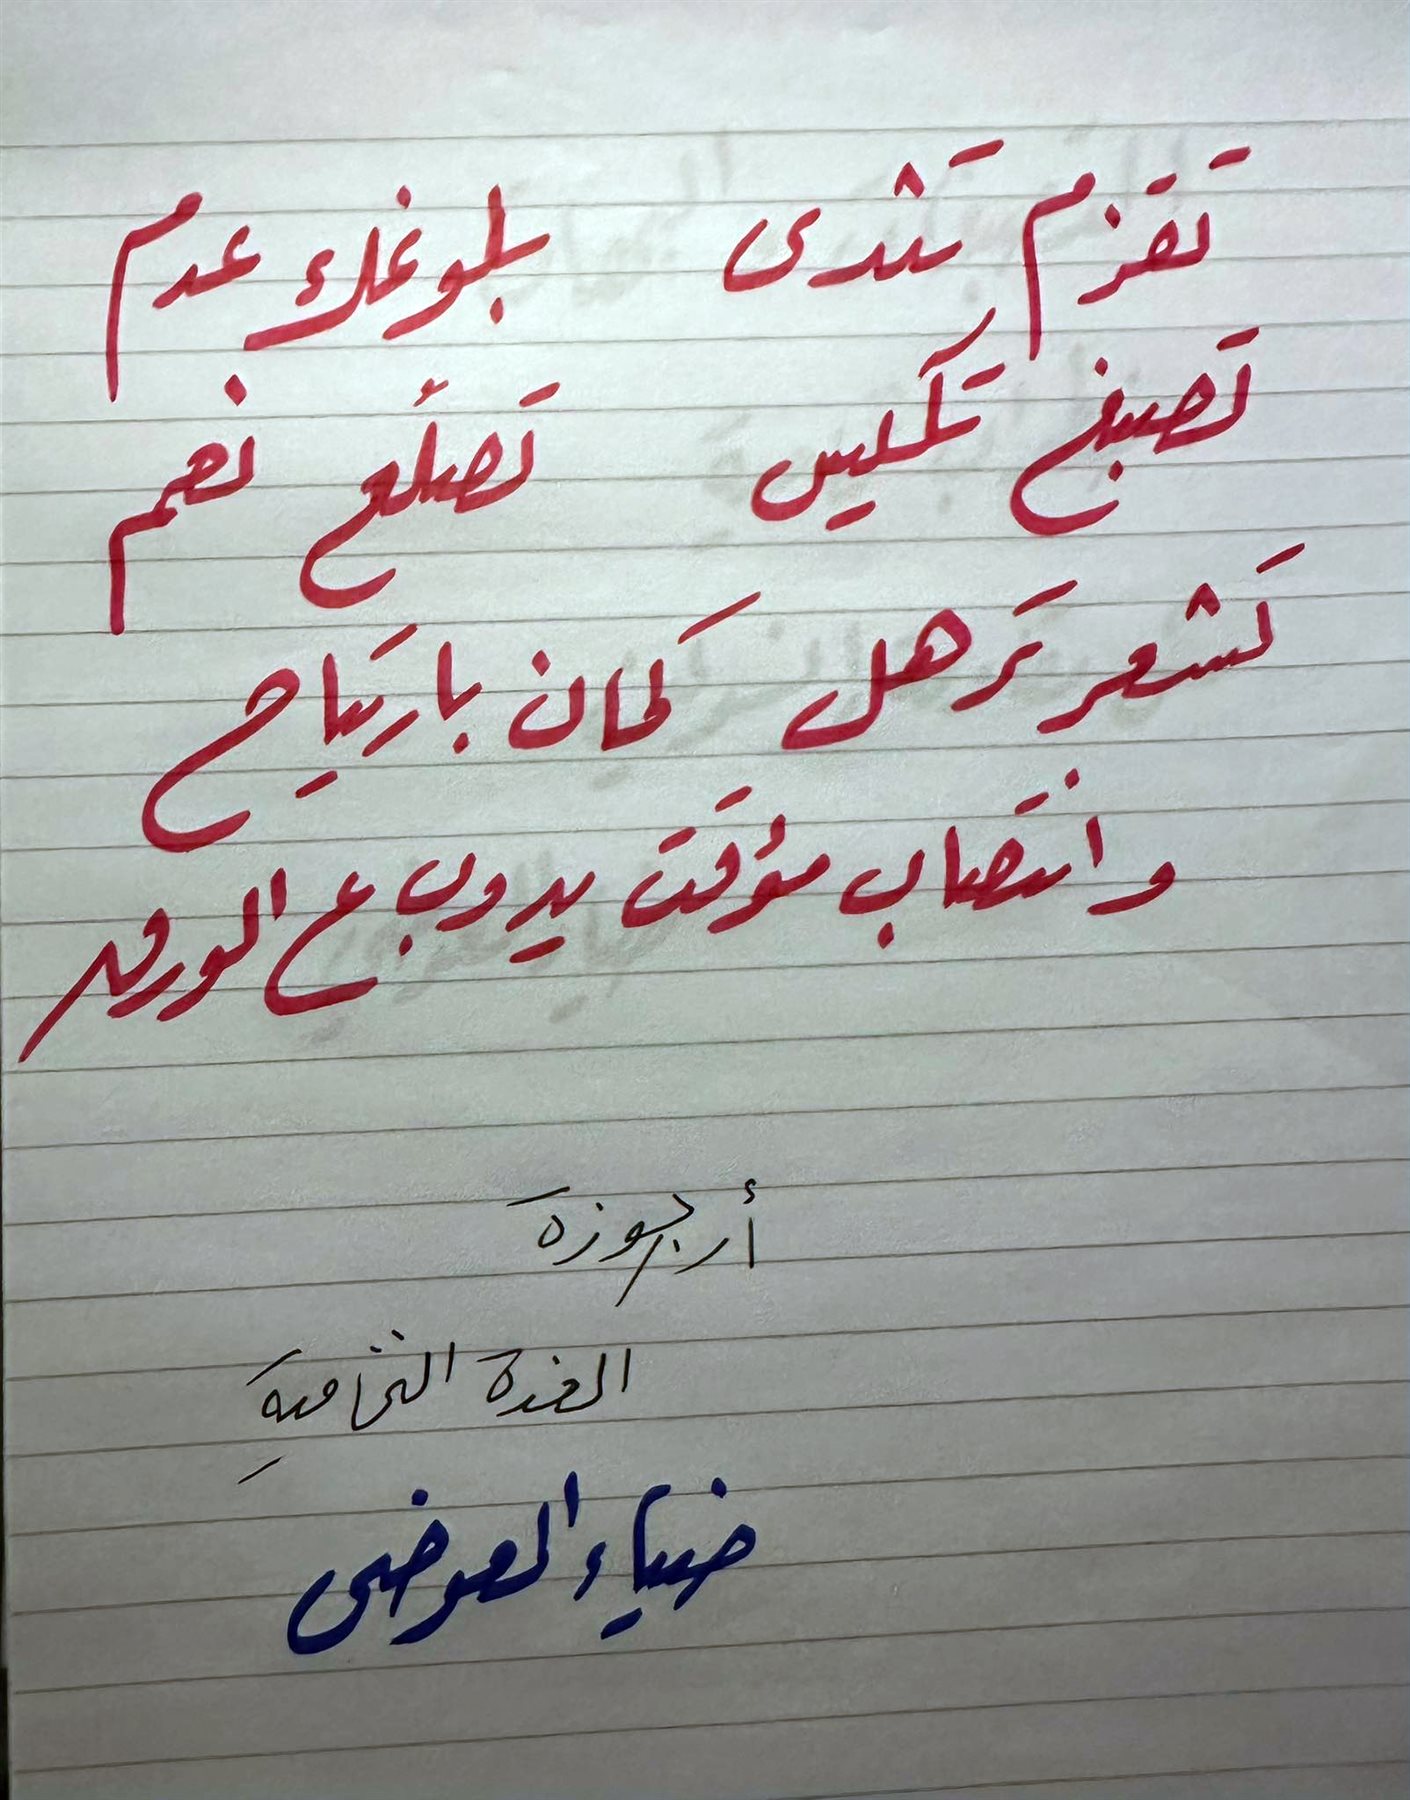 تقزم تثدى بلوغك عدم
تصبغ تكيس تصلّع نهم
تشعر ترهل كمان بارتياح
وانتصاب مؤقت يدوب ع الورق
أرجوزة
الغدة النخامية
ضياء العوضى